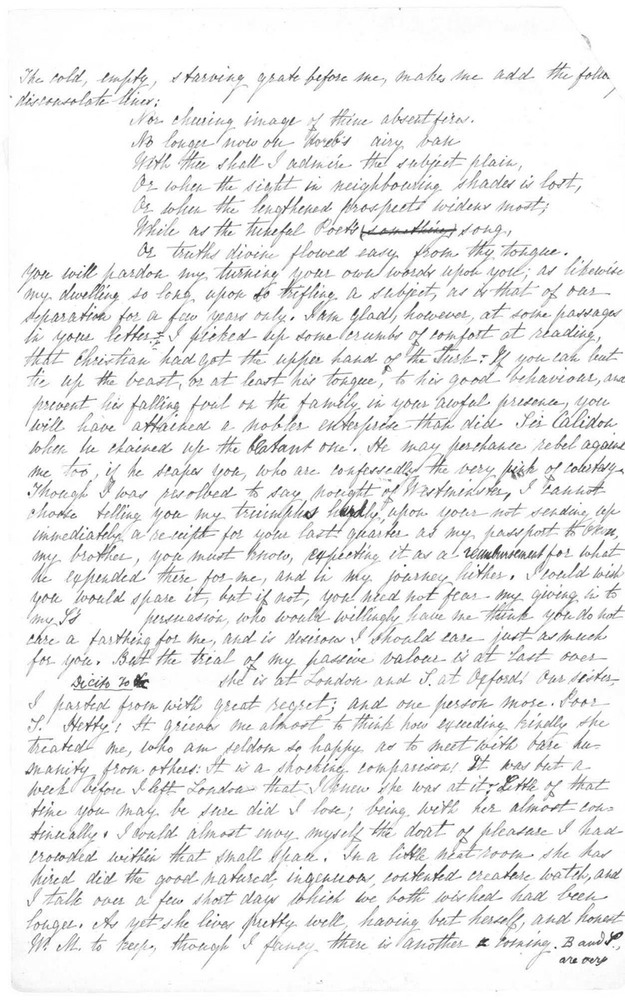 The cold, empty, starving grate before me, makes me add the follow
disconsolate lines;
Nor cheering image of thine absent fires.
No longer now on Horeb's airy van
With thee shall I admire the subject plain,
Or when the sight in neighbouring shades is lost,
Or when the lengthened prospects widens most;
While as the tuneful Poet's (something) song,
Or truths divine flowed easy from thy tongue.
You will pardon my turning your own words upon you; as likewise
my dwelling so long upon so trifling a subject, as is that of our
separation for a few years only. I am glad, however, at some passages
in your letter - I picked up some crumbs of comfort at reading,
that Christian had got the upper hand of the Turk: If you can but
tie up the beast, or at least his tongue, to his good behaviour, and
prevent his falling foul on the family in your awful presence, you
will have attained a nobler enterprise than did Sir Calidon
when he chained up the Blatant one. He may perchance rebel against
me too, if he scapes you, who are confessedly the very pink of courtesy.
Though I was resolved to say nought of Westminster, I cannot
choose telling you my triumphs hardly, upon your not sending up
immediately a receipt for your last quarter as my passport to Oxon,
my brother, you must know, expecting it as a reimbursement for what
he expended there for me, and in my journey hither. I could wish
you would spare it, but if not, you need not fear my giving in to
my S's persuasion, who would willingly have me think you do not
care a farthing for me, and is desirous I should care just as much
for you. But the trial of my passive valour is at last over
Dicito Io she is at London and I at Oxford! Our sister
I parted from with great regret; and one person more. Poor
S. Hetty! It grieves me almost to think how exceeding kindly she
treated me, who am seldom so happy as to meet with bare hu-
manity from others: It is a shocking comparison! It was but a
week before I left London that I knew she was at it. Little of that
time you may be sure did I lose; being with her almost con-
tinually. I could almost envy myself the doat of pleasure I had
crowded within that small space. In a little neat room she has
hired did the good natured, ingenuous, contented creature watch, and
I talk over a few short days which we both wished had been
longer. As yet she lives pretty well, having but herself, and honest
W. M. to keep, though I fancy there is another a coming. B and S.
are very